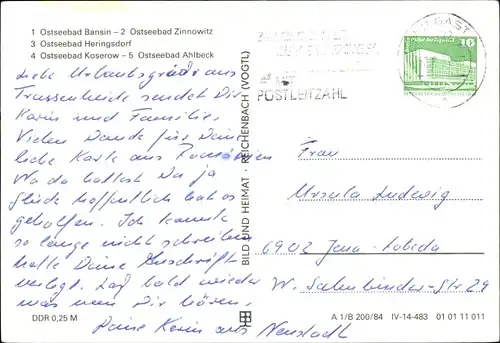 1 Ostseebad Bansin – 2 Ostseebad Zinnowitz
3 Ostseebad Heringsdorf
4 Ostseebad Koserow – 5 Ostseebad Ahlbeck
Liebe Urlaubsgrüße aus
Trassenheide sendet Dir
Karin und Familie.
Vielen Dank für Deine
liebe Karte aus Rumänien
Na da hattest Du ja
Glück hoffentlich hat es
geholfen. Ich konnte
so lange nicht schreiben
hatte Deine Anschrift
verlegt. Laß bald wieder
was von Dir hören.
Deine Karin aus Neustadt
BILD UND HEIMAT · REICHENBACH (VOGTL)
GAST
POSTLEITZAHL
10
Frau
Ursula Ludwig
6902 Jena-Lobeda
DDR 0,25 M
A 1/B 200/84 IV-14-483 01 01 11 011